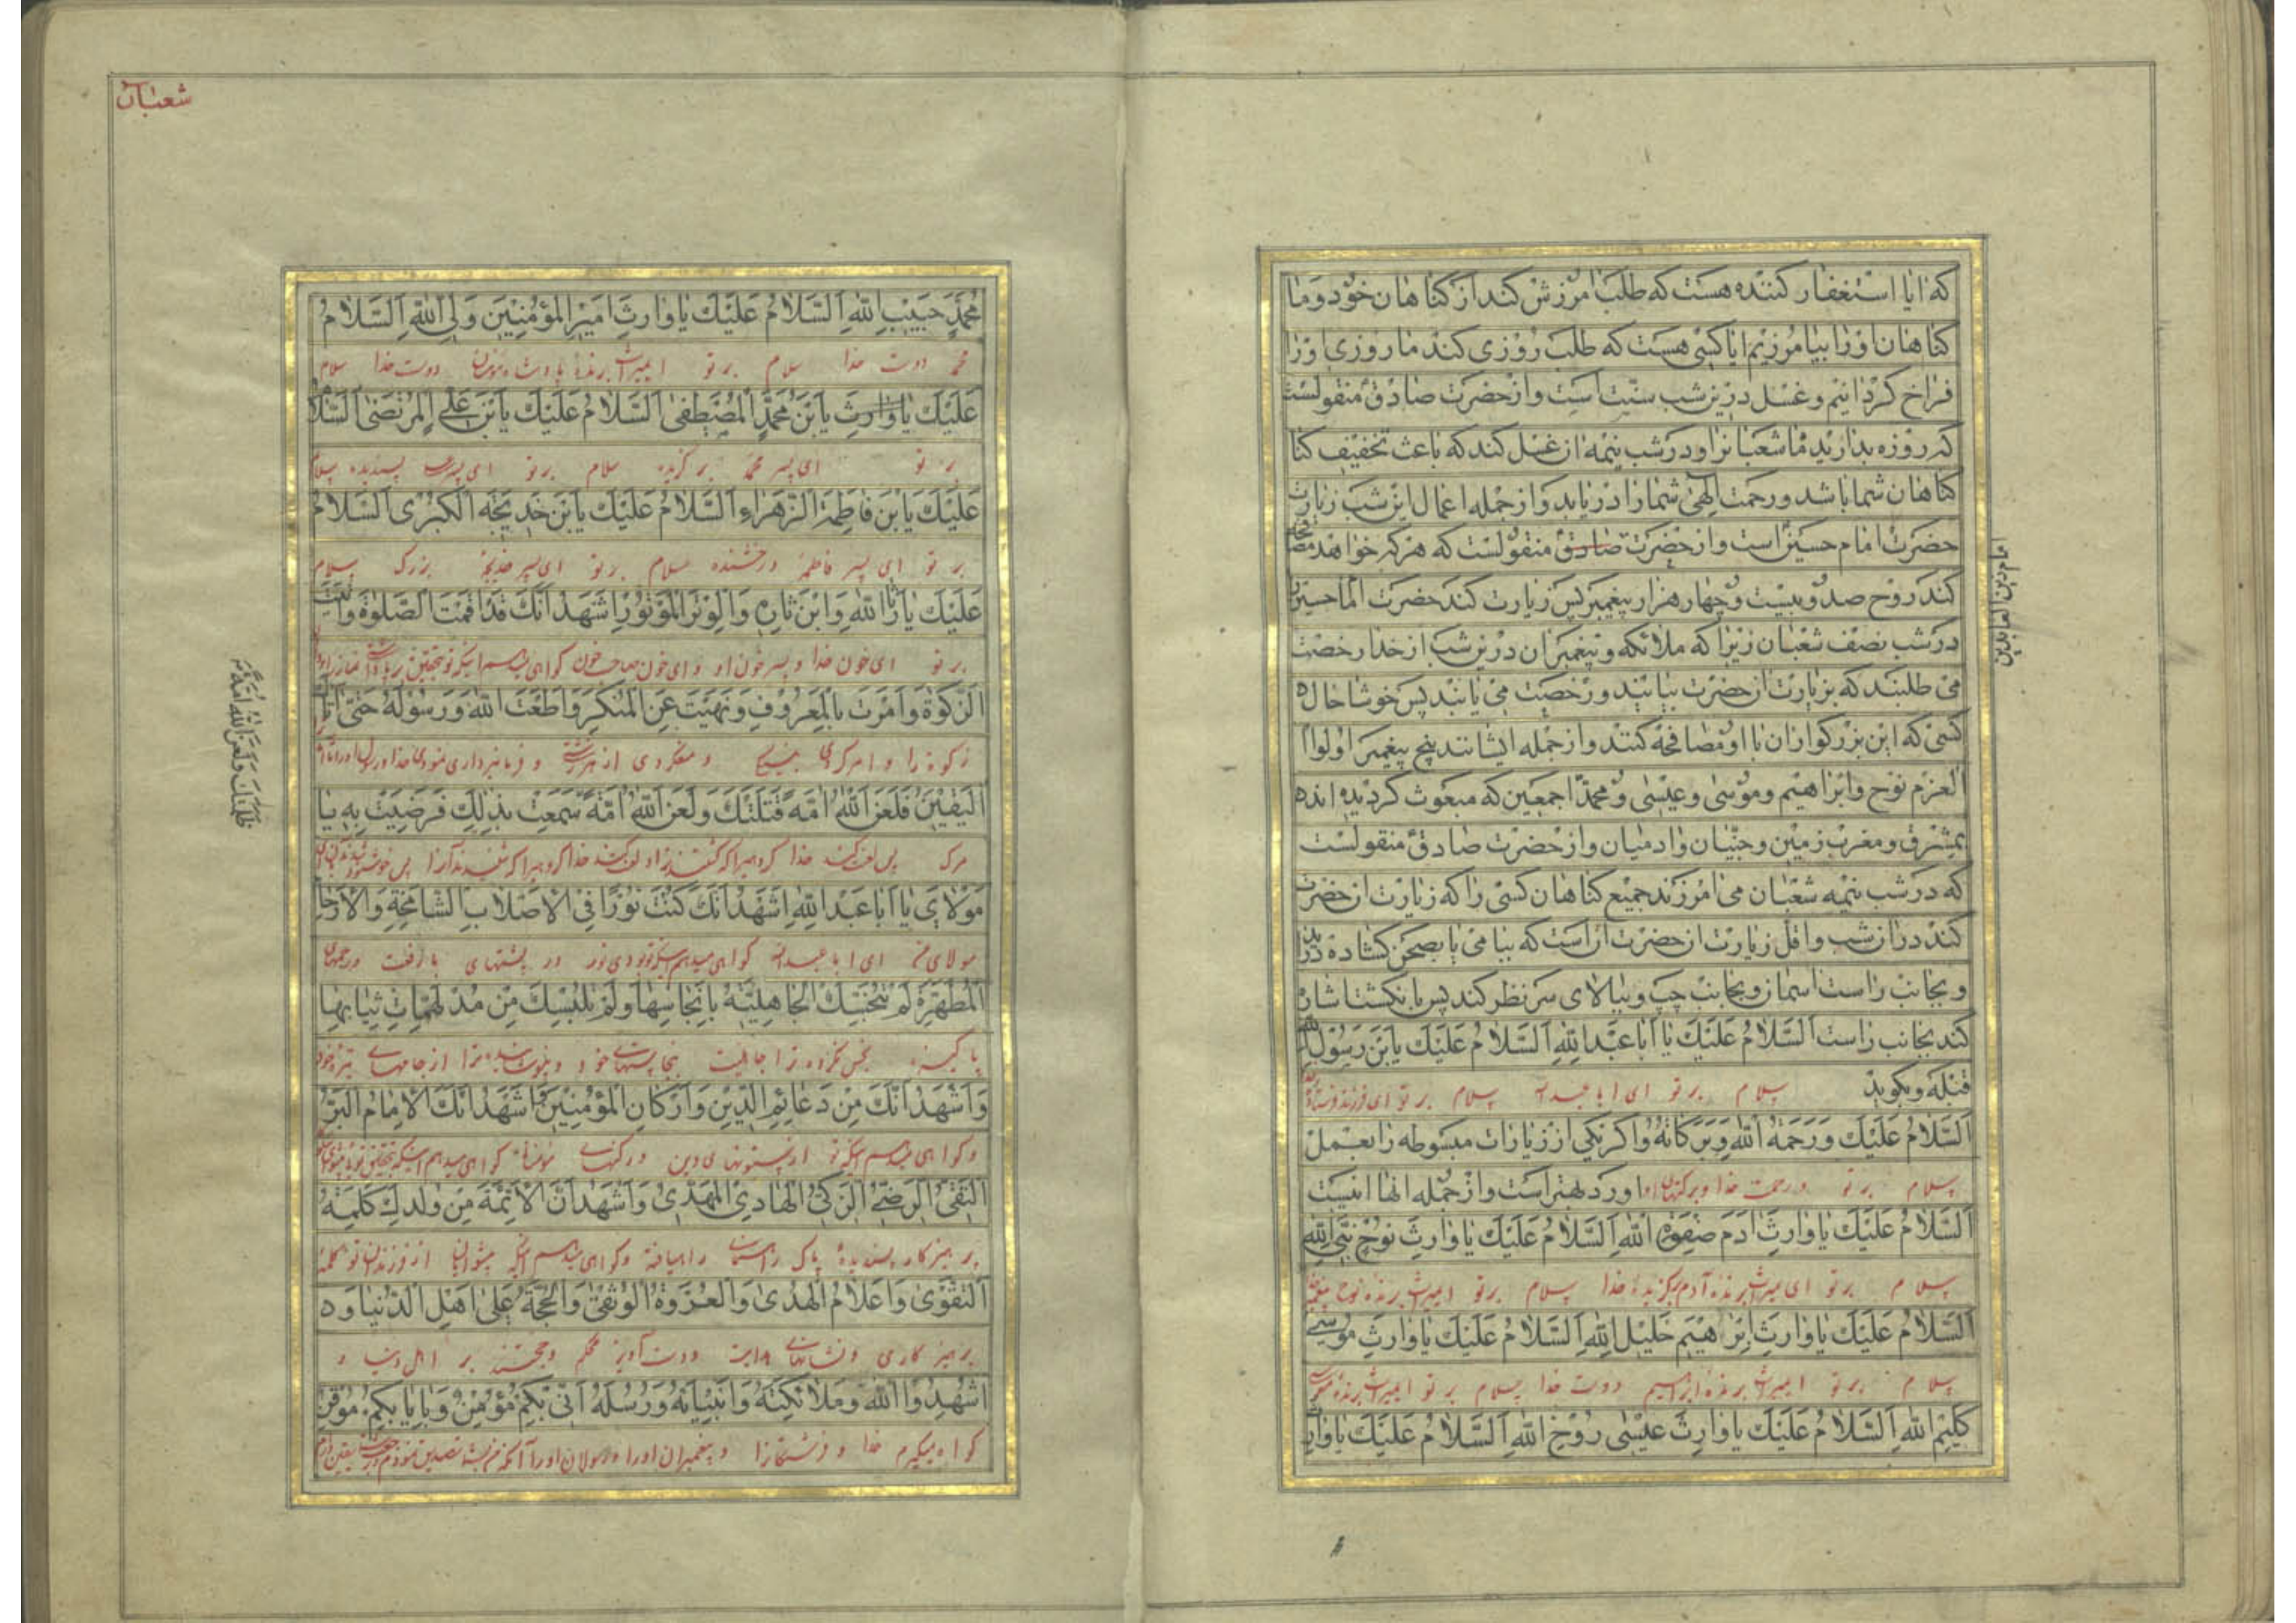 که ایا استغفار کننده هست که طلب امرزش کند از کناهان خود و ما
کناهان او را بیامرزیم ایا کسی هست که طلب روزی کند ما روزی او را
فراخ کردانیم و غسل درین شب سنت است و از حضرت صادق منقولست
که روزه بدارید ماه شعبانرا و در شب نیمه ان غسل کند که باعث تخفیف کنا
کناهان شما باشد و رحمت الهی شما را دریابد و از جمله اعمال این شب زیارت
حضرت امام حسین است و از حضرت صادق منقولست که هرکه خواهد مصافحه
امام زین العابدین
کند روح صد و بیست و چهار هزار پیغمبر پس زیارت کند حضرت امام حسین را
در شب نصف شعبان زیرا که ملائکه و پیغمبران درین شب از خدا رخصت
می طلبند که بزیارت انحضرت بیایند و رخصت می یابند پس خوشا حال
کسی که این بزرکواران با او مصافحه کنند و از جمله ایشانند پنج پیغمبر اولوا
العزم نوح و ابراهیم و موسی و عیسی و محمد اجمعین که مبعوث کردیده اند
بمشرق و مغرب زمین و جنیان و ادمیان و از حضرت صادق منقولست
که در شب نیمه شعبان می امرزند جمیع کناهان کسی را که زیارت انحضرت
کند در ان شب و اقل زیارت انحضرت انست که ببامی یا بصحن کشاده در اید
و بجانب راست اسمان و بجانب چپ و ببالای سر نظر کند پس بانکشت اشاره
کند بجانب راست اَلسَّلامُ عَلَیْكَ یا اَبا عَبْدِ اللهِ اَلسَّلامُ عَلَیْكَ یَا بْنَ رَسُولِ الله
قبله و بکوید سلام بر تو ای ابا عبدالله سلام بر تو ای فرزند فرستاده
اَلسَّلامُ عَلَیْكَ وَرَحْمَةُ اللهِ وَبَرَکاتُهُ و اکر یکی از زیارات مبسوطه را بعمل
سلام بر تو و رحمت خدا و برکتهای او اورد بهتر است و از جمله انها اینست
اَلسَّلامُ عَلَیْكَ یا وارِثَ ادَمَ صَفْوَةِ اللهِ اَلسَّلامُ عَلَیْكَ یا وارِثَ نُوحٍ نَبِیِّ اللهِ
سلام بر تو ای میراث برنده آدم برکزیدهٔ خدا سلام بر تو ایمیراث برنده نوح پیغمبر
اَلسَّلامُ عَلَیْكَ یا وارِثَ اِبْرهیمَ خَلیلِ اللهِ اَلسَّلامُ عَلَیْكَ یا وارِثَ مُوسی
سلام بر تو ایمیراث برندهٔ ابراهیم دوست خدا سلام بر تو ایمیراث برندهٔ موسی
کَلیمِ اللهِ اَلسَّلامُ عَلَیْكَ یا وارِثَ عیسی رُوحِ اللهِ اَلسَّلامُ عَلَیْكَ یا وارِثَ
شعبان
مُحَمَّدٍ حَبیبِ اللهِ اَلسَّلامُ عَلَیْكَ یا وارِثَ اَمیرِ الْمُؤْمِنینَ وَلِیِّ اللهِ اَلسَّلامُ
محمد دوست خدا سلام بر تو ایمیراث برندهٔ پادشاه مؤمنان دوست خدا سلام
عَلَیْكَ یا وارِثَ یَا بْنَ مُحَمَّدٍ الْمُصْطَفی اَلسَّلامُ عَلَیْكَ یَا بْنَ عَلِیٍّ الْمُرْتَضی اَلسَّلامُ
بر تو ای پسر محمد برکزیده سلام بر تو ای پسر علی پسندیده سلام
عَلَیْكَ یَا بْنَ فاطِمَةَ الزَّهْراءِ اَلسَّلامُ عَلَیْكَ یَا بْنَ خَدیجَةَ الْکُبْری اَلسَّلامُ
بر تو ای پسر فاطمهٔ درخشنده سلام بر تو ای پسر خدیجهٔ بزرک سلام
عَلَیْكَ یا ثارَ اللهِ وَابْنَ ثارِهِ وَالْوِتْرَ الْمَوْتُورَ اَشْهَدُ اَنَّكَ قَدْ اَقَمْتَ الصَّلوةَ وَاتَیْتَ
بر تو ای خون خدا و پسر خون او و ای خون صاحب خون کواهی میدهم اینکه تو بتحقیق برپا داشتی نماز را و دادی
الزَّکوةَ وَاَمَرْتَ بِالْمَعْرُوفِ وَنَهَیْتَ عَنِ الْمُنْکَرِ وَاَطَعْتَ اللهَ وَرَسُولَهُ حَتّی اَتیكَ
زکوة را و امر کردی بنیکی و منع کردی از هر زشتی و فرمانبرداری نمودی خدا و رسول او را تا آنکه
الْیَقینُ فَلَعَنَ اللهُ اُمَّةً قَتَلَتْكَ وَلَعَنَ اللهُ اُمَّةً سَمِعَتْ بِذلِكَ فَرَضِیَتْ بِهِ یا
ظَلَمَتْكَ وَلَعَنَ اللهُ اُمَّةً
مرک پس لعنت کند خدا کروهیرا که کشتند ترا و لعنت کند خدا کروهیرا که شنیدند آنرا پس خوشنود شدند بآن ای
مَوْلایَ یا اَبا عَبْدِ اللهِ اَشْهَدُ اَنَّكَ کُنْتَ نُورًا فِی الْاَصْلابِ الشّامِخَةِ وَالْاَرْحامِ
مولای من ای ابا عبدالله کواهی میدهم اینکه تو بودی نور در پشتهای با رفعت و رحمهای
الْمُطَهَّرَةِ لَمْ تُنَجِّسْكَ الْجاهِلِیَّةُ بِاَنْجاسِها وَلَمْ تُلْبِسْكَ مِنْ مُدْلَهِمّاتِ ثِیابِها
پاکیزه نجس نکرده ترا جاهلیت بنجاستهای خود و نپوشانیده ترا از جامهای تیره خود
وَاَشْهَدُ اَنَّكَ مِنْ دَعائِمِ الدّینِ وَاَرْکانِ الْمُؤْمِنینَ وَاَشْهَدُ اَنَّكَ الْاِمامُ الْبَرُّ
و کواهی میدهم اینکه تو از ستونهای دین و رکنهای مؤمنان و کواهی میدهم اینکه بتحقیق تویی پیشوای نیکوکار
التَّقِیُّ الرَّضِیُّ الزَّکِیُّ الْهادِی الْمَهْدِیُّ وَاَشْهَدُ اَنَّ الْاَئِمَّةَ مِنْ وُلْدِكَ کَلِمَةُ
پرهیزکار پسندیدهٔ پاک راهنمای راه یافته و کواهی میدهم اینکه پیشوایان از فرزندان تو کلمهٔ
التَّقْوی وَاَعْلامُ الْهُدی وَالْعُرْوَةُ الْوُثْقی وَالْحُجَّةُ عَلی اَهْلِ الدُّنْیا وَ
پرهیزکاری و نشانهای هدایت و دست آویز محکم و حجتند بر اهل دنیا و
اُشْهِدُ اللهَ وَمَلائِکَتَهُ وَاَنْبِیائَهُ وَرُسُلَهُ اَنّی بِکُمْ مُؤْمِنٌ وَبِاِیابِکُمْ مُوقِنٌ
کواه میکیرم خدا و فرشتکانرا و پیغمبران او را و رسولان او را آنکه من بشما تصدیق نموده‌ام و برجعت شما یقین دارم